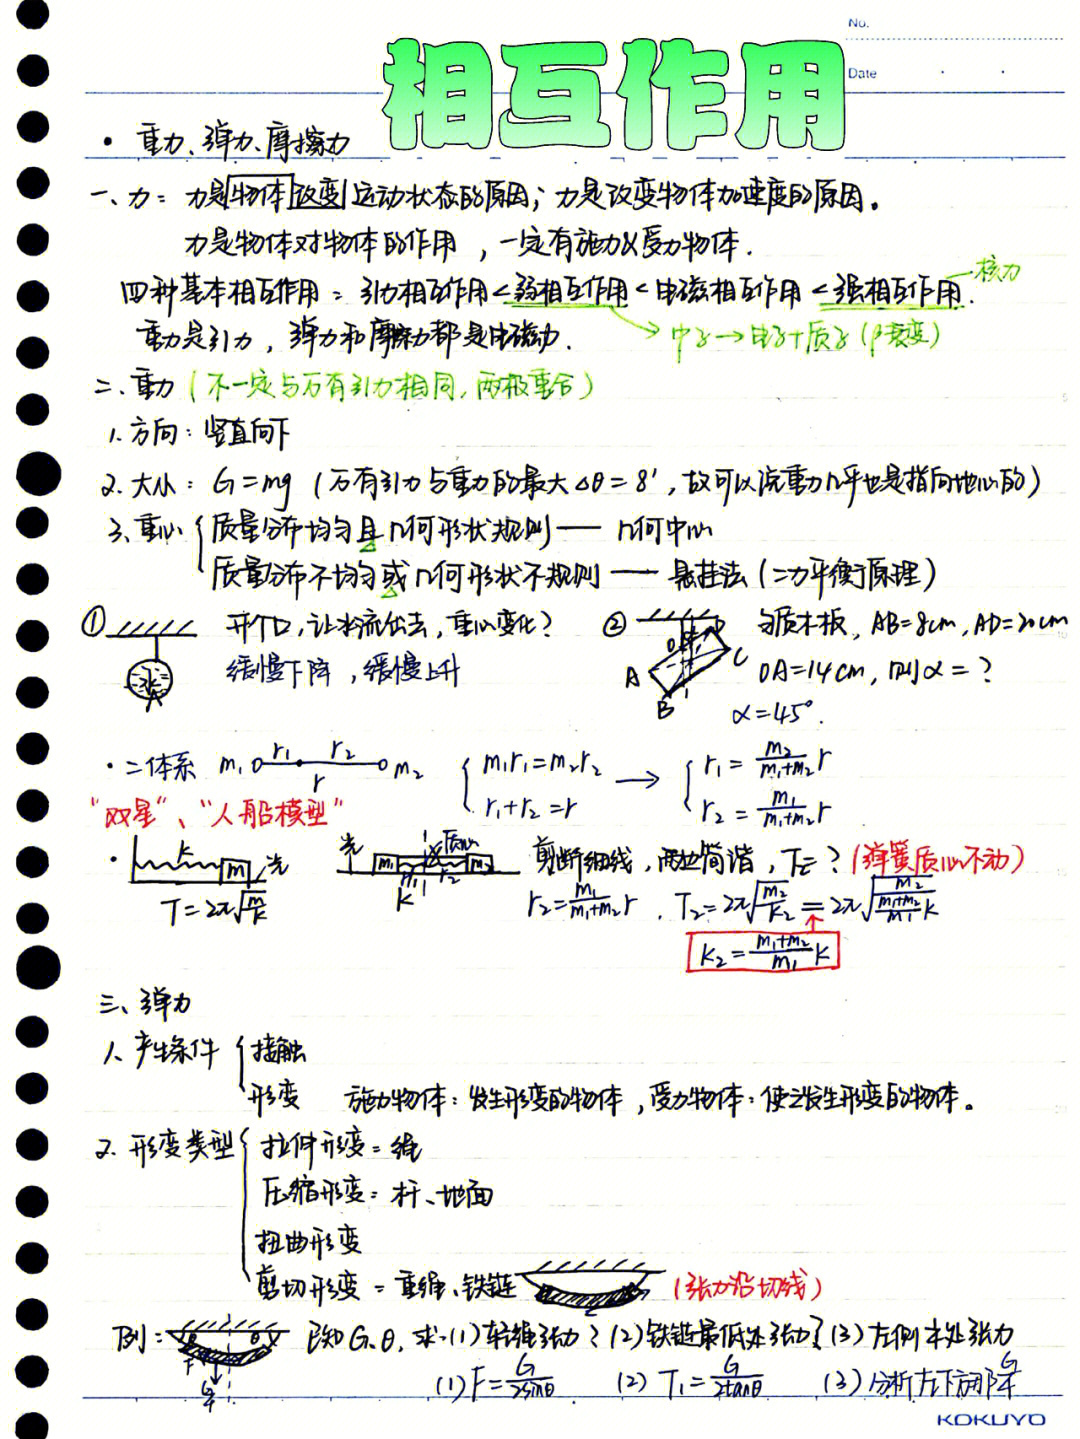 No.
相互作用
Date
· 重力、弹力、摩擦力
一、力: 力是物体改变运动状态的原因; 力是改变物体加速度的原因。
力是物体对物体的作用, 一定有施力&受力物体.
四种基本相互作用: 引力相互作用<弱相互作用<电磁相互作用<强相互作用. 核力
重力是引力, 弹力和摩擦力都是电磁力. 中子→电子+质子(β衰变)
二、重力(不一定与万有引力相同, 两极重合)
1. 方向: 竖直向下
2. 大小: G=mg (万有引力与重力的最大Δθ=8', 故可以说重力几乎也是指向地心的)
3. 重心 { 质量分布均匀且几何形状规则 — 几何中心
质量分布不均匀或几何形状不规则 — 悬挂法(二力平衡原理)
① 开个口, 让水流出去, 重心变化? ② 匀质木板, AB=8cm, AD=20cm
水 A 缓慢下降, 缓慢上升 O D A B C OA=14cm, 则α=?
α=45°.
· 二体系 m₁ r₁ r₂ m₂ r { m₁r₁=m₂r₂ → { r₁=m₂/(m₁+m₂) r
r₁+r₂=r r₂=m₁/(m₁+m₂) r
"双星"、"人船模型"
· k m 光 光 m₁ 质心 m₂ r₁ r₂ k 剪断细线, 两边简谐, T₂=? (弹簧质心不动)
T=2π√(m/k) r₂=m₁/(m₁+m₂) r, T₂=2π√(m₂/k₂)=2π√(m₂/((m₁+m₂)/m₁ k))
k₂=(m₁+m₂)/m₁ k
三、弹力
1. 产生条件 { 接触
形变 施力物体: 发生形变的物体, 受力物体: 使之发生形变的物体。
2. 形变类型 { 拉伸形变: 绳
压缩形变: 杆、地面
扭曲形变
剪切形变: 重绳、铁链 (张力沿切线)
例: θ θ F G/4 已知G、θ, 求:(1)轻绳张力? (2)铁链最低处张力? (3)左侧¼处张力
(1) F=G/2sinθ (2) T₁=G/2tanθ (3) 分析左下方那段G/4
KOKUYO